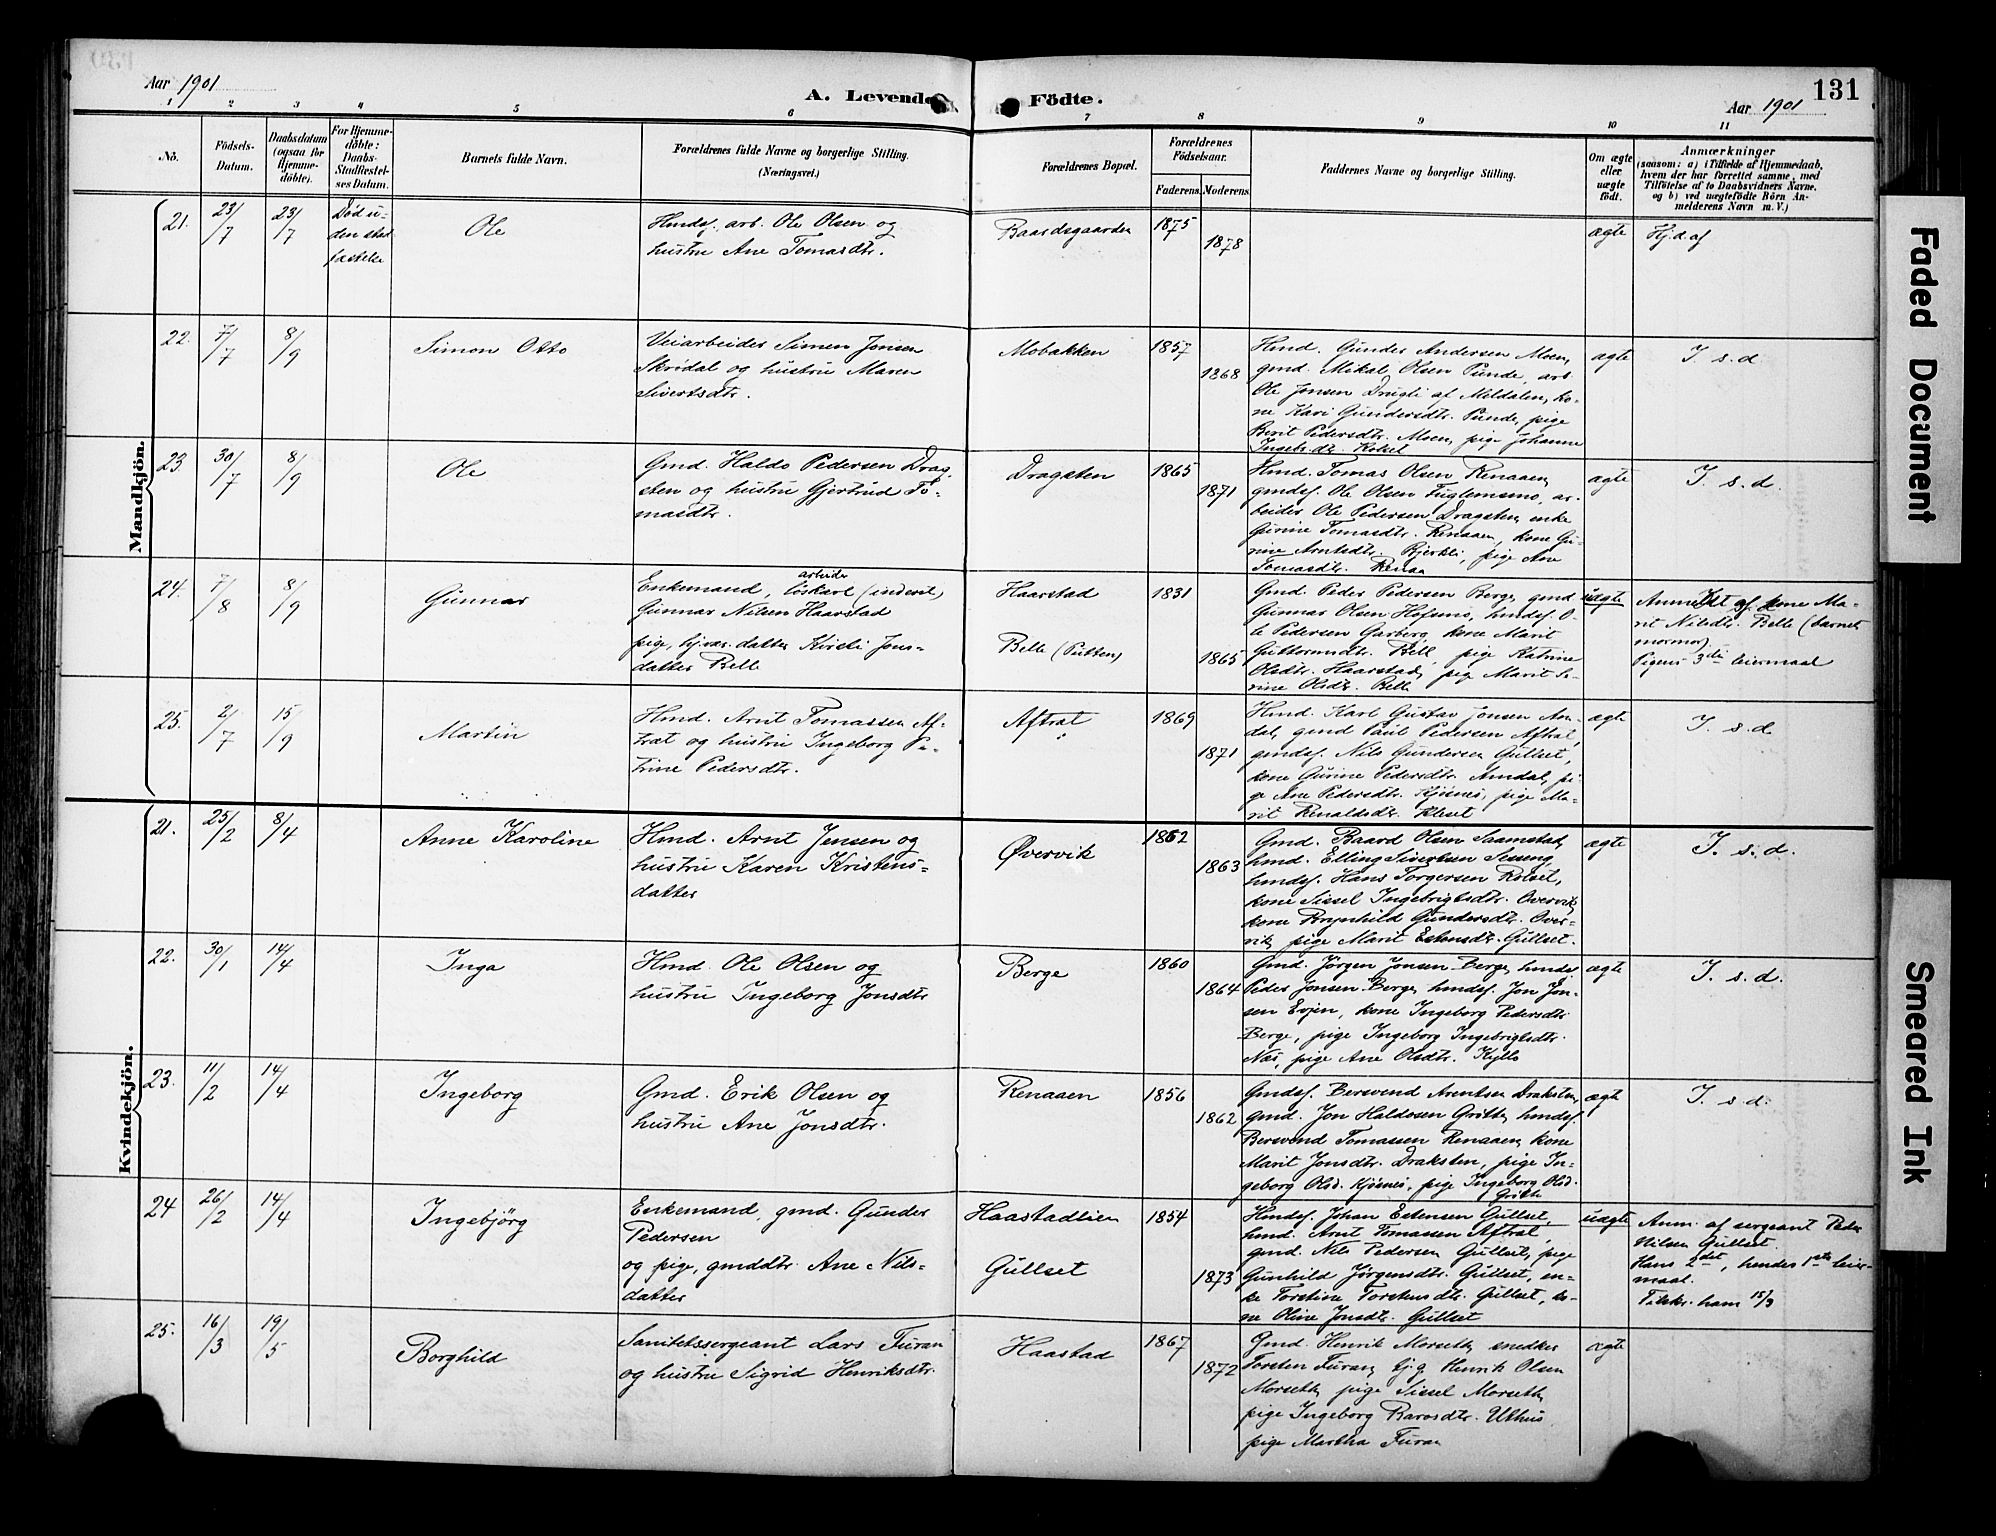 Aar 1901
A. Levende Födte.
Aar 1901
131
1 2 3 4 5 6 7 8 9 10 11
No.
Födsels-Datum.
Daabsdatum (ogsaa for Hjemme-döbte).
For Hjemme-döbte: Daabs-Stadfæstel-ses Datum.
Barnets fulde Navn.
Forældrenes fulde Navne og borgerlige Stilling. (Næringsvei.)
Forældrenes Bopæl.
Forældrenes Födselsaar.
Faderens. Moderens.
Faddernes Navne og borgerlige Stilling.
Om ægte eller uægte födt.
Anmærkninger
(saasom: a) i Tilfælde af Hjemmedaab, hvem der har forrettet samme, med Tilföielse af to Daabsvidners Navne, og b) ved uægtefödte Börn Anmelderens Navn m. V.)
Mandkjön.
21. 23/7 23/7 Død u-
den stad
fæstelse
Ole
Hmdsf. arb. Ole Olsen og
hustru Ane Tomasdtr.
Baardsgaarden 1875 1878
ægte Hj.d. af
22. 7/7 8/9
Simon Otto
Veiarbeider Simen Jonsen
Skridal og hustru Maren
Sivertsdtr.
Mobakken 1857 1868
Hmd. Gunder Andersen Moen,
gmd. Mikal Olsen Punde, arb.
Ole Jonsen Drugli af Meldalen, ko-
ne Kari Gundersdtr. Punde, pige
Berit Pedersdtr. Moen, pige Johanne
Ingebr.dtr. Rolset
ægte I s. d.
23. 30/7 8/9
Ole
Gmd. Haldo Pedersen Drag-
sten og hustru Gjertrud To-
masdtr.
Dragsten 1865 1871
Hmd. Tomas Olsen Renaaen,
gmdsf. Ole Olsen Fuglemsmo, ar-
beider Ole Pedersen Dragsten, enke
Gurine Tomasdtr. Renaaen, kone Gu-
rine Arntsdtr. Bjerkli, pige Ane
Tomasdtr. Renaa
ægte I. s. d.
24. 7/8 8/9
Gunnar
Enkemand, arbeider løskarl (inderst)
Gunnar Nilsen Haarstad
pige, hj.vær. datter Kirsti Jons-
datter Bell
Haarstad
Belle (Putten)
1831 1865
Gmd. Peder Pedersen Berge, gmd
Gunnar Olsen Hofsmo, hmdsf. O-
le Pedersen Garberg, kone Marit
Guttormsdtr. Bell, pige Katrine
Olsdtr. Haarstad, pige Marit Se-
rine Olsdtr. Bell
uægte
Anmeldt af kone Ma-
rit Nilsdtr. Belle (barnets
mormor)
Pigens 3die leiermaal
25. 2/7 15/9
Martin
Hmd. Arnt Tomassen Af-
tret og hustru Ingeborg Pe-
trine Pedersdtr.
Aftrat 1869 1871
Hmd. Karl Gustav Jonsen Am-
dal, gmd Paul Pedersen Aftrat,
gmdsf. Nils Gundersen Gullset,
kone Gurine Pedersdtr. Amdal, pi-
ge Ane Pedersdtr. Kjøsnes, pige Ma-
rit Renaldsdtr. Kleset
ægte I s. d.
Kvindekjön.
21. 25/2 8/4
Anne Karoline
Hmd. Arnt Jensen og
hustru Karen Kristens-
datter
Øvervik 1862 1863
Gmd. Baard Olsen Saamstad,
hmd. Elling Sivertsen Sesseng,
hmdsf. Hans Torgersen Rolset,
kone Sissel Ingebrigtsdtr. Overvik,
kone Brynhild Gundersdtr. Over-
vik, pige Marit Estensdtr. Gullset.
ægte I. s. d.
22. 30/1 14/4
Inga
Hmd. Ole Olsen og
hustru Ingeborg Jonsdtr
Berge 1860 1864
Gmd. Jörgen Jonsen Berge, hmdsf.
Peder Jonsen Berge, hmdsf. Jon Jon-
sen Evjen, kone Ingeborg Pedersdtr
Berge, pige Ingeborg Ingebrigtsdtr.
Næs, pige Ane Olsdtr. Kyllo
ægte I s. d.
23. 11/2 14/4
Ingeborg
Gmd. Erik Olsen og
hustru Ane Jonsdtr.
Renaaen 1856 1862
Gmdsf. Bersvend Arentsen Draksten,
gmd. Jon Haldosen Grøtte, hmdsf.
Bersvend Tomassen Renaaen, kone
Marit Jonsdtr. Draksten, pige In-
geborg Olsd. Kjøsnes, pige Ingeborg Olsd.
Grøtte
ægte I. s. d.
24 26/2 14/4
Ingebjörg
Enkemand, gmd. Gunder
Pedersen
og pige, gmddtr. Ane Nils-
datter
Haastadlien
Gullset
1854 1873
Hmdsf. Johan Estensen Gullset,
hmd. Arnt Tomassen Aftrat,
gmd. Nils Pedersen Gullset, pige
Gunhild Jørgensdtr. Gullset, en-
ke Torstine Torstensdtr. Gullset, ko-
ne Oline Jonsdtr. Gullset
uægte
Anm. af sergeant Peder
Nilsen Gullset.
Hans 2det, hendes 1ste leier-
maal.
Tilskr. ham 15/3
25. 16/3 19/5
Borghild
Sanitetssergeant Lars Furan
og hustru Sigrid Henriksdtr.
Haastad 1867 1872
Gmd. Henrik Morseth, snedker
Torsten Furan, hj.g. Henrik Olsen
Morseth, pige Sissel Morseth,
pige Ingeborg Barosdtr. Uthus
pige Martha Furan
ægte
Faded Document
Smeared Ink